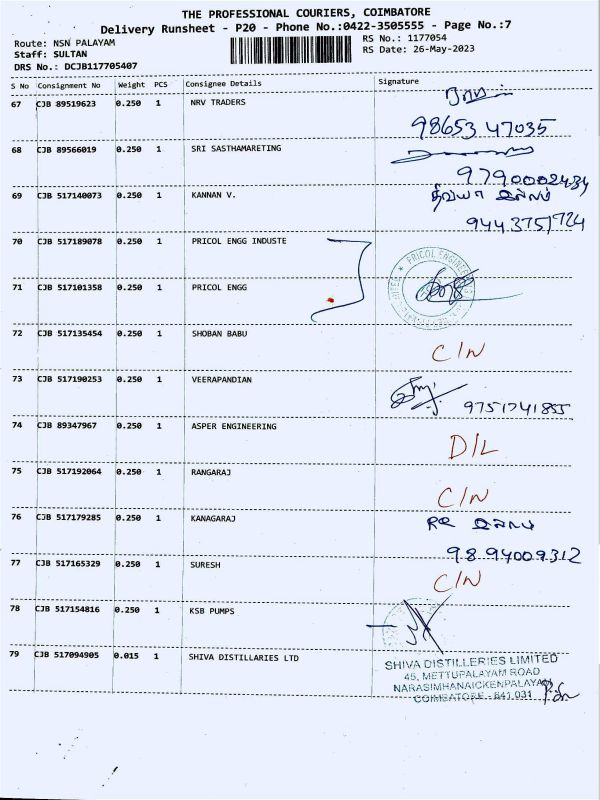 THE PROFESSIONAL COURIERS, COIMBATORE
Delivery Runsheet - P20 - Phone No.:0422-3505555 - Page No.:7
Route: NSN PALAYAM
RS No.: 1177054
Staff: SULTAN
RS Date: 26-May-2023
DRS No.: DCJB117705407
S No Consignment No Weight PCS Consignee Details Signature
67 CJB 89519623 0.250 1 NRV TRADERS
98653 47035
68 CJB 89566019 0.250 1 SRI SASTHAMARETING
9790002434
69 CJB 517140073 0.250 1 KANNAN V.
திவ்யா இல்லம்
9443751724
70 CJB 517189078 0.250 1 PRICOL ENGG INDUSTE
PRICOL ENGINEERING
71 CJB 517101358 0.250 1 PRICOL ENGG
72 CJB 517135454 0.250 1 SHOBAN BABU
C/N
73 CJB 517190253 0.250 1 VEERAPANDIAN
9751741855
74 CJB 89347967 0.250 1 ASPER ENGINEERING
D/L
75 CJB 517192064 0.250 1 RANGARAJ
C/N
76 CJB 517179285 0.250 1 KANAGARAJ
இல்லம்
9894009312
77 CJB 517165329 0.250 1 SURESH
C/N
78 CJB 517154816 0.250 1 KSB PUMPS
79 CJB 517094905 0.015 1 SHIVA DISTILLARIES LTD
SHIVA DISTILLERIES LIMITED
45, METTUPALAYAM ROAD
NARASIMHANAICKENPALAYAM
COIMBATORE - 641 031